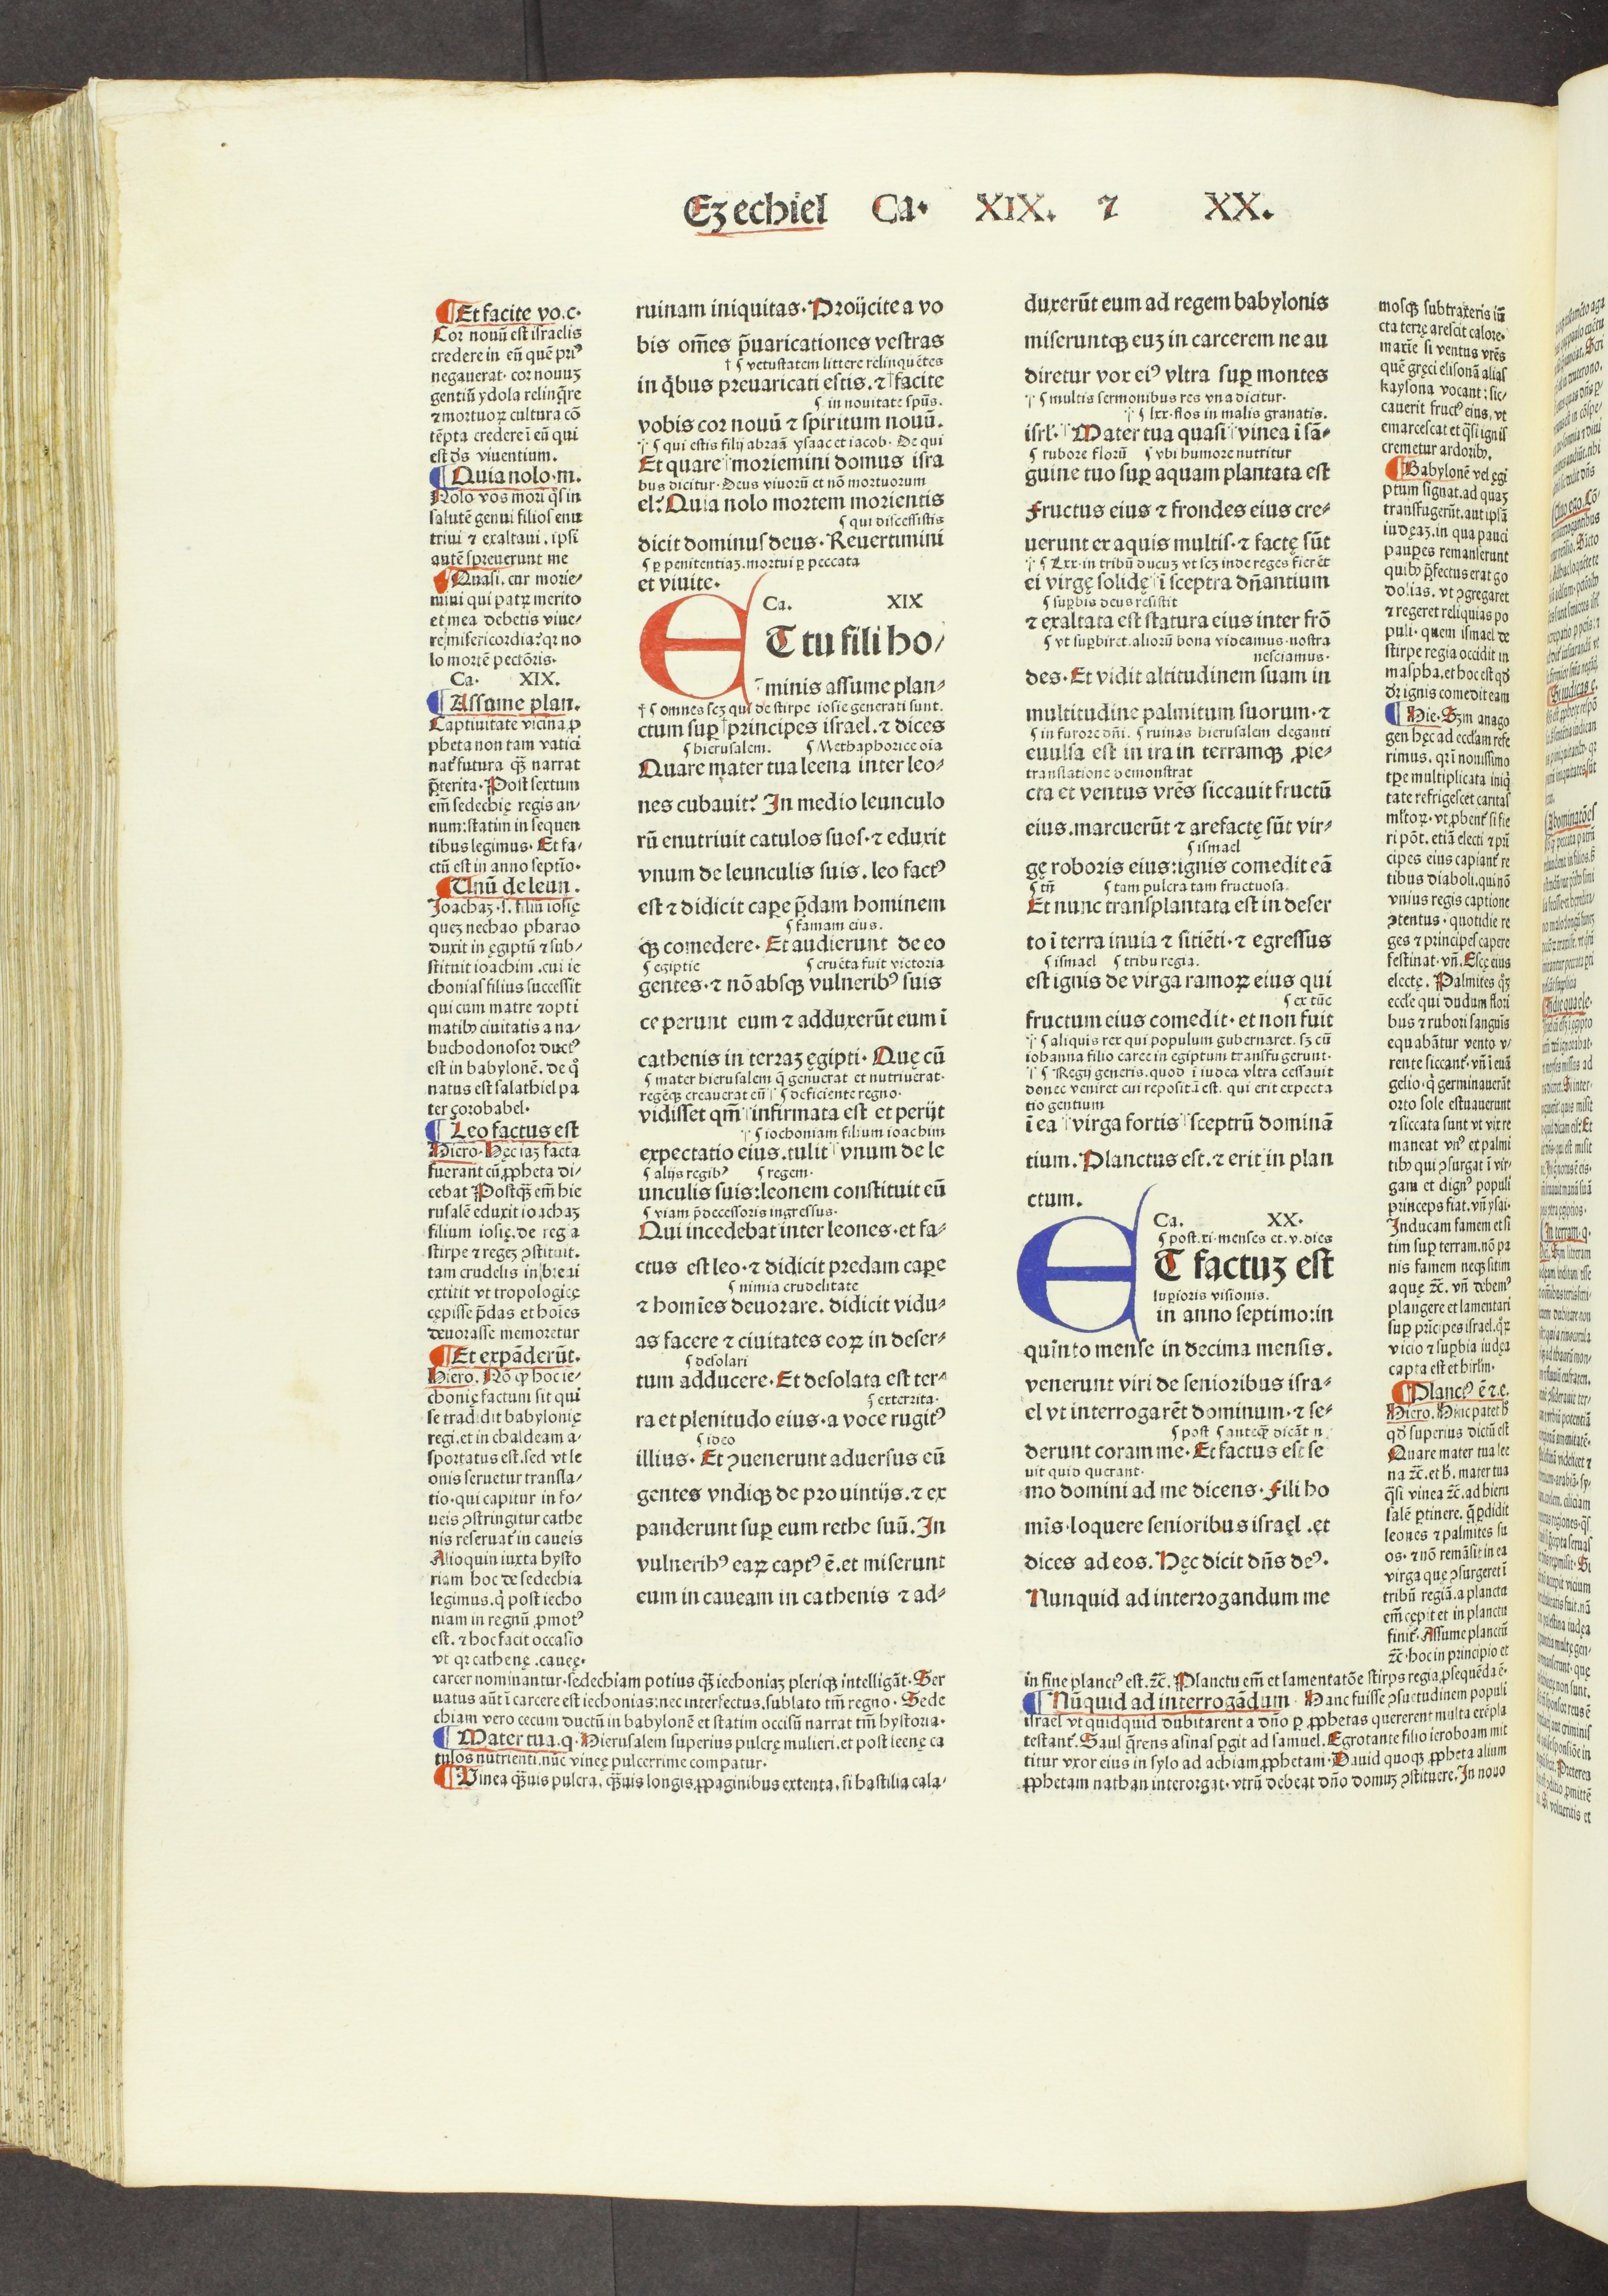 Ezechiel Ca. XIX. ⁊ XX.
Et facite vo.c.
Cor nouũ est israelis
credere in eũ quẽ priꝰ
negauerat. cor nouuȝ
gentiũ ydola relinq̃re
⁊ mortuoꝝ cultura cõ
tẽpta credere ĩ eũ qui
est d̃s viuentium.
Quia nolo.m.
Nolo vos mori q̃s in
salutẽ genui filios enu
triui ⁊ exaltaui. ipsi
autẽ spreuerunt me
Quasi. cur morie-
mini qui patrȝ merito
et mea debetis viue/
re misericordia? qꝛ no
lo mortẽ pectõris.
Ca. XIX.
Assume plan.
Captiuitate vicina ꝓ
pheta non tam vatici
nat̃ futura q̃ȝ narrat
p̃terita. Post sextum
em̃ sedechię regis an/
num: statim in sequen
tibus legimus. Et fa/
ctũ est in anno septĩo.
Unũ de leun.
Joachaȝ .s. filiũ iosię
queȝ nechao pharao
duxit in ęgiptũ ⁊ sub/
stituit ioachim. cui ie
chonias filius successit
qui cum matre ⁊ opti
matibꝰ ciuitatis a na/
buchodonosor ductꝰ
est in babylonẽ. de q̊
natus est salathiel pa
ter çorobabel.
Leo factus est
Hiero. Hęc iaȝ facta
fuerant cũ ꝓpheta di/
cebat Postq̃ȝ em̃ hie
rusalẽ eduxit ioachaȝ
filium iosię. de regia
stirpe ⁊ regeȝ ꝯstituit.
tam crudelis in breui
extitit vt tropologice
cępisse p̃das et hoĩes
deuorasse memoretur
Et expãderũt.
Hiero. Nõ ꝙ hoc ie/
chonię factum sit qui
se tradidit babylonię
regi. et in chaldeam a/
sportatus est. sed vt le
onis seruetur transla/
tio. qui capitur in fo/
ueis ꝯstringitur cathe
nis reseruat̃ in caueis
Alioquin iuxta hysto
riam hoc de sedechia
legimus. q̇ post iecho
niam in regnũ ꝓmotꝰ
est. ⁊ hoc facit occasio
vt qꝛ cathenę. cauęę.
carcer nominantur. sedechiam potius q̃ȝ iechoniaȝ pleriqꝫ intelligãt. Ser
uatus aũt ĩ carcere est iechonias: nec interfectus. sublato tm̃ regno. Sede
chiam vero cecum ductũ in babylonẽ et statim occisũ narrat tm̃ hystoria.
Mater tua.q. Hierusalem superius pulcrę mulieri. et post leenę ca
tulos nutrienti. nũc vineę pulcerrime compatur.
Vinea q̃ȝuis pulcra, q̃ȝuis longis ꝓpaginibus extenta, si hastilia cala/
ruinam iniquitas. Proijcite a vo
bis om̃es p̃uaricationes vestras
† ¶ vetustatem littere relinquẽtes
in q̇bus preuaricati estis. ⁊ †facite
¶ in nouitate sp̃us.
vobis cor nouũ ⁊ spiritum nouũ.
¶ qui estis filij abraã ysaac et iacob. De qui
Et quare moriemini domus isra
bus dicitur. Deus viuorũ et nõ mortuorum
el? Quia nolo mortem morientis
¶ qui discessistis
dicit dominus deus. Reuertimini
¶ ꝑ penitentiaȝ. mortui ꝑ peccata
et viuite.
Ca. XIX
ET tu fili ho/
minis assume plan-
† ¶ omnes scȝ qui de stirpe iosie generati sunt.
ctum suꝑ †principes israel. ⁊ dices
¶ hierusalem. ¶ Methaphorice oĩa
Quare mater tua leena inter leo-
nes cubauit? In medio leunculo
rũ enutriuit catulos suos. ⁊ eduxit
vnum de leunculis suis. leo factꝰ
est ⁊ didicit caꝑe p̃dam hominem
¶ famam eius.
qꝫ comedere. Et audierunt de eo
¶ egiptie ¶ cruẽta fuit victoria
gentes. ⁊ nõ absqꝫ vulneribꝰ suis
ceperunt eum ⁊ adduxerũt eum ĩ
cathenis in terraȝ ęgipti. Quę cũ
¶ mater hierusalem q̃ genuerat et nutriuerat.
regẽqꝫ creauerat eũ ¶ deficiente regno.
vidisset qm̃ infirmata est et perijt
¶ iochoniam filium ioachim
expectatio eius. tulit vnum de le
¶ alijs regibꝰ ¶ regem.
unculis suis: leonem constituit eũ
¶ viam p̃decessoris ingressus.
Qui incedebat inter leones. et fa-
ctus est leo. ⁊ didicit predam caꝑe
¶ nimia crudelitate
⁊ homĩes deuorare. didicit vidu-
as facere ⁊ ciuitates eoꝝ in deser-
¶ desolari
tum adducere. Et desolata est ter-
¶ exterrita.
ra et plenitudo eius. a voce rugitꝰ
¶ ideo
illius. Et ꝯuenerunt aduersus eũ
gentes vndiqꝫ de prouintijs. ⁊ ex
panderunt suꝑ eum rethe suũ. In
vulneribꝰ eaꝝ captꝰ ẽ. et miserunt
eum in caueam in cathenis ⁊ ad-
duxerũt eum ad regem babylonis
miseruntqꝫ euȝ in carcerem ne au
diretur vox eiꝰ vltra suꝑ montes
¶ multis sermonibus res vna dicitur.
¶ lxx. flos in malis granatis.
isrl. Mater tua quasi vinea ĩ sã-
¶ rubore florũ ¶ vbi humore nutritur
guine tuo suꝑ aquam plantata est
Fructus eius ⁊ frondes eius cre-
uerunt ex aquis multis. ⁊ factę sũt
¶ Lxx. in tribũ ducuȝ vt scȝ inde reges fierẽt
ei virgę solidę ĩ sceptra dñantium
¶ suꝑbis deus resistit
⁊ exaltata est statura eius inter frõ
¶ vt suꝑbiret. aliorũ bona videamus. nostra
nesciamus.
des. Et vidit altitudinem suam in
multitudine palmitum suorum. ⁊
¶ in furore dñi. ¶ ruinas hierusalem eleganti
euulsa est in ira in terramqꝫ ꝓie-
translatione demonstrat
cta et ventus vrẽs siccauit fructũ
eius. marcuerũt ⁊ arefactę sũt vir-
¶ ismael
gę roboris eius: ignis comedit eã
¶ tñ ¶ tam pulcra tam fructuosa.
Et nunc transplantata est in deser
to ĩ terra inuia ⁊ sitiẽti. ⁊ egressus
¶ ismael ¶ tribu regia.
est ignis de virga ramoꝝ eius qui
¶ ex tũc
fructum eius comedit. et non fuit
¶ aliquis rex qui populum gubernaret. sȝ cũ
iohanna filio caree in egiptum transfugerunt.
¶ Regij generis. quod ĩ iudea vltra cessauit
donec veniret cui repositã est. qui erit expecta
tio gentium
ĩ ea virga fortis sceptrũ dominã
tium. Planctus est. ⁊ erit in plan
ctum.
Ca. XX.
¶ post .xi. menses et .v. dies
ET factuȝ est
suꝑioris visionis.
in anno septimo: in
quinto mense in decima mensis.
venerunt viri de senioribus isra-
el vt interrogarẽt dominum. ⁊ se-
¶ post ¶ anteq̃ȝ dicãt n
derunt coram me. Et factus est se
uit quid querant.
mo domini ad me dicens. Fili ho
mĩs. loquere senioribus israęl. et
dices ad eos. Hęc dicit dñs deꝰ.
Nunquid ad interrogandum me
mosqꝫ subtraxeris iũ
cta terrę arescit calore.
maxĩe si ventus vrẽs
quẽ gręci elisonã alias
kaysona vocant: sic/
cauerit fructꝰ eius. vt
emarcescat et q̃si ignis
cremetur ardoribꝰ.
Babylonẽ vel ęgi
ptum signat. ad quaȝ
transfugerũt. aut ipsã
iudęaȝ. in qua pauci
pauꝑes remanserunt
quibꝰ p̃fectus erat go
dolias. vt ꝯgregaret
⁊ regeret reliquias po
puli. quem ismael de
stirpe regia occidit in
maspha. et hoc est qd̃
dr̃ ignis comedit eam
Hie. Scȝm anago
gen hęc ad ecclam refe
rimus. qꝛ ĩ nouissimo
tꝑe multiplicata iniq̇
tate refrigescet caritas
mltoꝝ. vt ꝓbent̃ si fie
ri põt. etiã electi ⁊ pri
cipes eius capiant̃ re
tibus diaboli. qui nõ
vnius regis captione
ꝯtentus. quotidie re
ges ⁊ principes capere
festinat. vñ. Escę eius
electę. Palmites q̊ȝ
eccle qui dudum flori
bus ⁊ rubori sanguis
equabãtur vento v/
rente siccant̃. vñ ĩ euã
gelio. q̃ germinauerũt
orto sole estuauerunt
⁊ siccata sunt vt vix re
maneat vnꝰ ex palmi
tibꝰ qui ꝯsurgat ĩ vir/
gam et dignꝰ populi
princeps fiat. vñ ysai.
Inducam famem et si
tim suꝑ terram. nõ pa
nis famem neqꝫ sitim
aquę ⁊c̃. vñ debemꝰ
plangere et lamentari
suꝑ prĩcipes israel. q̊ꝝ
vicio ⁊ suꝑbia iudęa
capta est et hirlm.
Planctꝰ ẽ ⁊ e.
Hiero. Hinc patet ꝙ
qd̃ superius dictũ est
Quare mater tua lee
na ⁊c̃. et ħ. mater tua
q̃si vinea ⁊c̃. ad hieru
salẽ ꝑtinere. q̃ ꝑdidit
leones ⁊ palmites su
os. ⁊ nõ remãsit in ea
virga quę ꝯsurgeret ĩ
tribũ regiã. a plancta
em̃ cępit et in planctu
finit̃. Assume planctũ
⁊c̃. hoc in principio et
in fine planctꝰ est. ⁊c̃. Planctu em̃ et lamentatõe stirps regia ꝓsequẽda ẽ.
Nũquid ad interrogãdum. Hanc fuisse ꝯsuetudinem populi
israel vt quidquid dubitarent a dño ꝑ ꝓphetas quererent multa exẽpla
testant̃. Saul q̃rens asinas ꝑgit ad samuel. Egrotante filio ieroboam mit
titur vxor eius in sylo ad achiam ꝓphetam. Dauid quoqꝫ ꝓpheta alium
ꝓphetam nathan interorgat. vtrũ debeat dño domuȝ ꝯstituere. In nouo